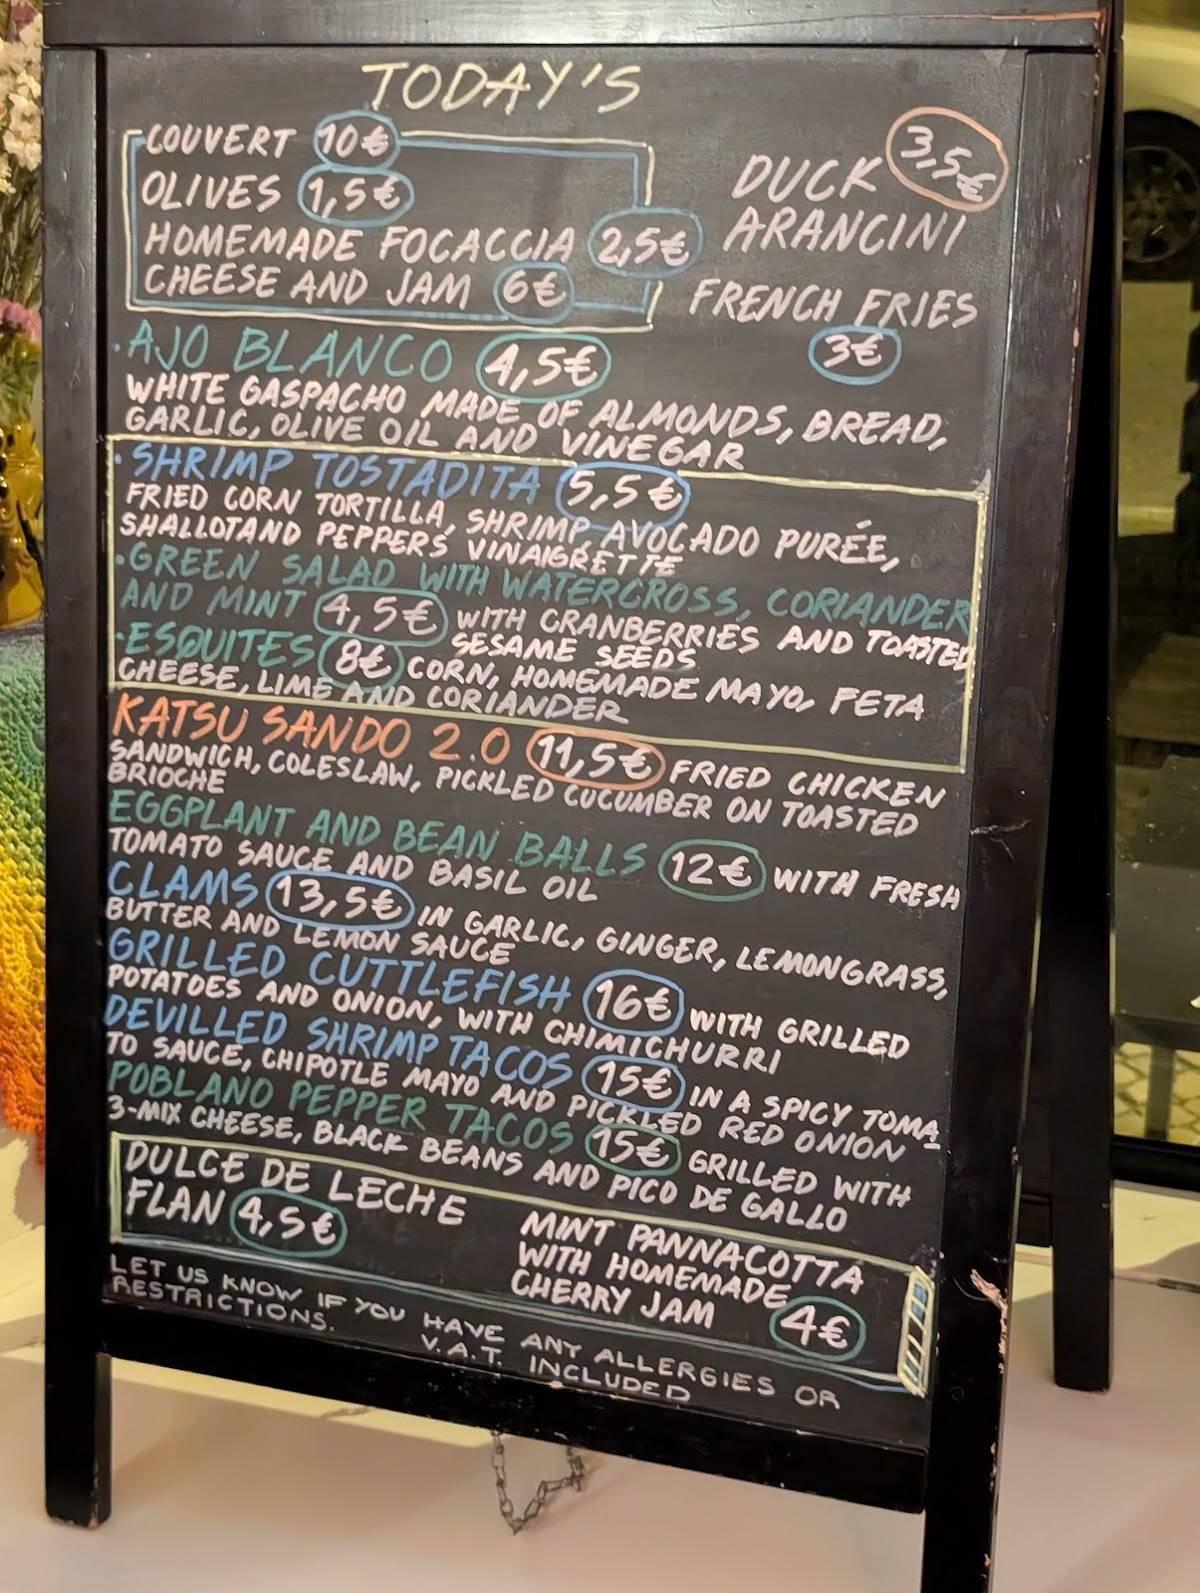 TODAY'S
COUVERT 10€
OLIVES 1,5€
HOMEMADE FOCACCIA 2,5€
CHEESE AND JAM 6€
DUCK 3,5€
ARANCINI
FRENCH FRIES
3€
·AJO BLANCO 4,5€
WHITE GASPACHO MADE OF ALMONDS, BREAD,
GARLIC, OLIVE OIL AND VINEGAR
·SHRIMP TOSTADITA 5,5€
FRIED CORN TORTILLA, SHRIMP, AVOCADO PURÉE,
SHALLOTAND PEPPERS VINAIGRETTE
·GREEN SALAD WITH WATERCROSS, CORIANDER
AND MINT 4,5€ WITH CRANBERRIES AND TOASTED
SESAME SEEDS
-ESQUITES 8€ CORN, HOMEMADE MAYO, FETA
CHEESE, LIME AND CORIANDER
KATSU SANDO 2.0 11,5€ FRIED CHICKEN
SANDWICH, COLESLAW, PICKLED CUCUMBER ON TOASTED
BRIOCHE
EGGPLANT AND BEAN BALLS 12€ WITH FRESH
TOMATO SAUCE AND BASIL OIL
CLAMS 13,5€ IN GARLIC, GINGER, LEMONGRASS,
BUTTER AND LEMON SAUCE
GRILLED CUTTLEFISH 16€ WITH GRILLED
POTATOES AND ONION, WITH CHIMICHURRI
DEVILLED SHRIMP TACOS 15€ IN A SPICY TOMA_
TO SAUCE, CHIPOTLE MAYO AND PICKLED RED ONION
POBLANO PEPPER TACOS 15€ GRILLED WITH
3-MIX CHEESE, BLACK BEANS AND PICO DE GALLO
DULCE DE LECHE
FLAN 4,5€
MINT PANNACOTTA
WITH HOMEMADE
CHERRY JAM 4€
LET US KNOW IF YOU HAVE ANY ALLERGIES OR
RESTRICTIONS. V.A.T. INCLUDED